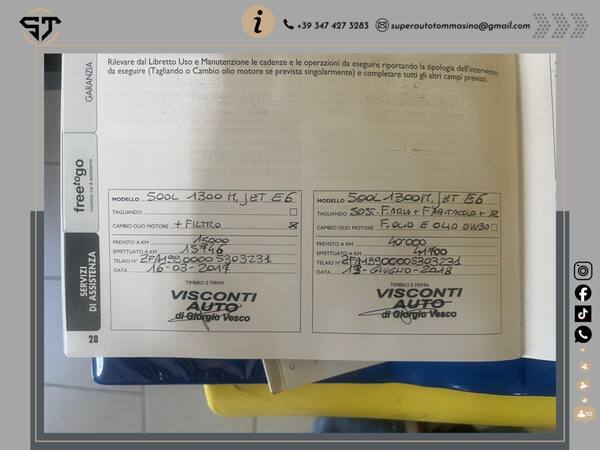 ST
i
+39 347 427 3283
superautotommasino@gmail.com
Rilevare dal Libretto Uso e Manutenzione le cadenze e le operazioni da eseguire riportando la tipologia dell'intervento
da eseguire (Tagliando o Cambio olio motore se prevista singolarmente) e completare tutti gli altri campi previsti.
GARANZIA
freetogo
SERVIZI
DI ASSISTENZA
28
MODELLO 500L 1300 M.JET E6
TAGLIANDO
CAMBIO OLIO MOTORE + FILTRO
PREVISTO A KM 15000
EFFETTUATO A KM 15746
TELAIO N°
DATA 16-03-2017
TIMBRO E FIRMA
VISCONTI
AUTO
di Giorgio Vesco
MODELLO 500L 1300 M.JET E6
TAGLIANDO SOST. F.ARIA + F.ABITACOLO +
CAMBIO OLIO MOTORE F.OLIO E OLIO 0W30
PREVISTO A KM 40000
EFFETTUATO A KM 41700
TELAIO N°
DATA 13-GIUGNO-2018
TIMBRO E FIRMA
VISCONTI
AUTO
di Giorgio Vesco